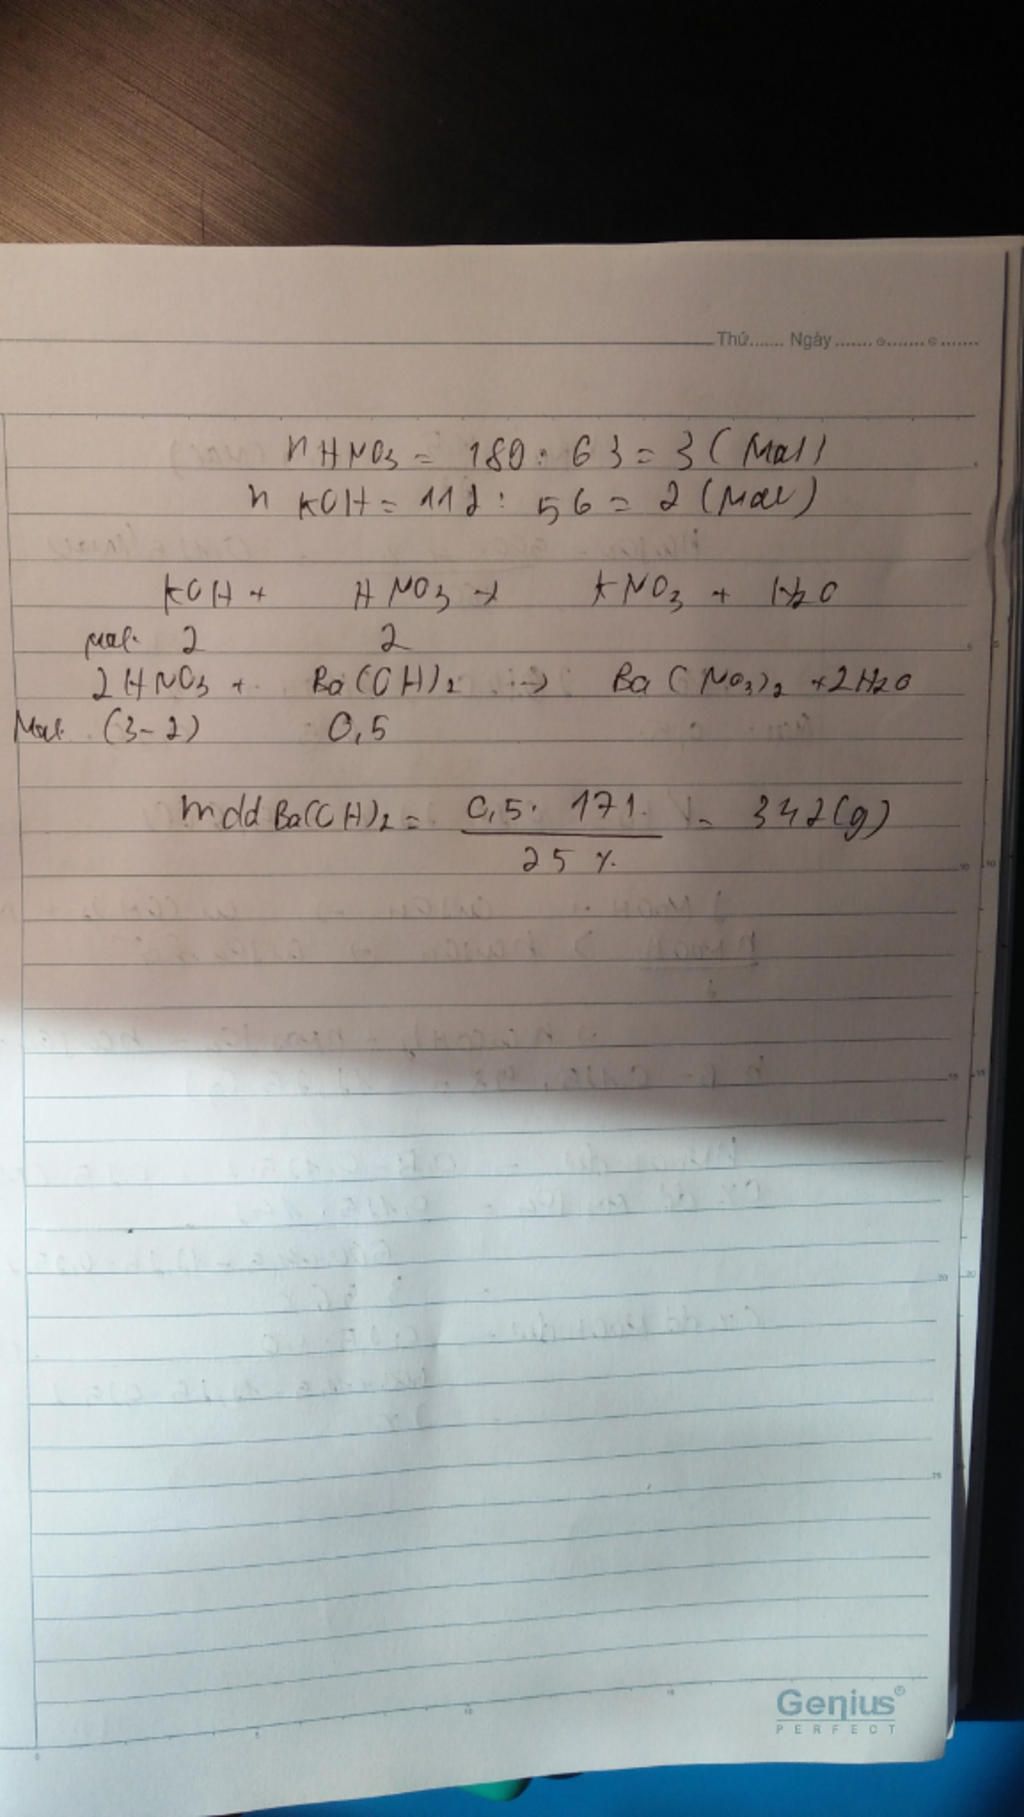 Thứ....... Ngày ....... ....... .......
nHNO3 = 180 : 63 = 3 (Mol)
n KOH = 112 : 56 = 2 (Mol)
KOH + HNO3 → KNO3 + H2O
Mol: 2 2
2HNO3 + Ba(OH)2 → Ba(NO3)2 + 2H2O
Mol: (3-2) 0,5
mdd Ba(OH)2 = 0,5 . 171 / 25 % = 342(g)
Genius®
PERFECT